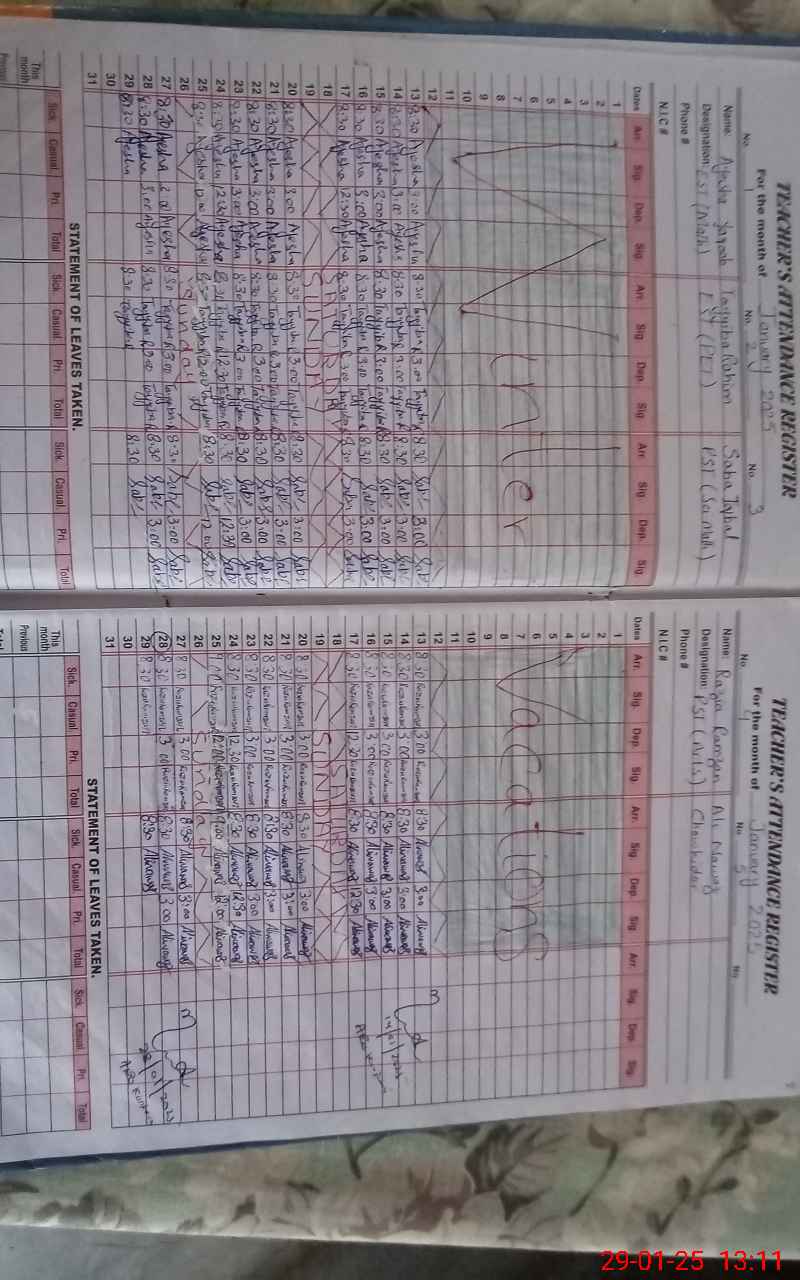 TEACHER'S ATTENDANCE REGISTER
For the month of January 2025
No. 1 No. 2 No. 3
Name: Ayesha Tayyiba Rahim Saba Iqbal
Designation: EST (Math) PST (Sc. Math)
Phone #
N.I.C #
Dates Arr. Sig. Dep. Sig. Arr. Sig. Dep. Sig. Arr. Sig. Dep. Sig.
1
2
3
4
5
6
7
8
9
10
11
12
Winter
13 8:30 Ayesha 3:00 Ayesha 8:30 Tayyiba R 3:00 Tayyiba R 8:30 Saba 3:00 Saba
14 8:30 Ayesha 3:00 Ayesha 8:30 Tayyiba R 3:00 Tayyiba R 8:30 Saba 3:00 Saba
15 8:30 Ayesha 3:00 Ayesha 8:30 Tayyiba R 3:00 Tayyiba R 8:30 Saba 3:00 Saba
16 8:30 Ayesha 3:00 Ayesha 8:30 Tayyiba R 3:00 Tayyiba R 8:30 Saba 3:00 Saba
17 8:30 Ayesha 12:30 Ayesha 8:30 Tayyiba R 3:00 Tayyiba R 8:30 Saba 3:00 Saba
18 SATURDAY
19 SUNDAY
20 8:30 Ayesha 3:00 Ayesha 8:30 Tayyiba R 3:00 Tayyiba R 8:30 Saba 3:00 Saba
21 8:30 Ayesha 3:00 Ayesha 8:30 Tayyiba R 3:00 Tayyiba R 8:30 Saba 3:00 Saba
22 8:30 Ayesha 3:00 Ayesha 8:30 Tayyiba R 3:00 Tayyiba R 8:30 Saba 3:00 Saba
23 8:30 Ayesha 3:00 Ayesha 8:30 Tayyiba R 3:00 Tayyiba R 8:30 Saba 3:00 Saba
24 8:30 Ayesha 12:30 Ayesha 8:30 Tayyiba R 12:30 Tayyiba R 8:30 Saba 12:30 Saba
25 Ayesha 12:00 Ayesha Tayyiba R 12:00 Tayyiba R 8:30 Saba 12:00 Saba
26 Sunday
27 8:30 Ayesha Ayesha 8:30 Tayyiba R 3:00 Tayyiba R 8:30 Saba 3:00 Saba
28 8:30 Ayesha 3:00 Ayesha 8:30 Tayyiba R 3:00 Tayyiba R 8:30 Saba 3:00 Saba
29 8:30 Ayesha 8:30 Tayyiba R 8:30 Saba
30
31
STATEMENT OF LEAVES TAKEN.
Sick Casual Pri. Total Sick Casual Pri. Total Sick Casual Pri. Total
This month
Previous
TEACHER'S ATTENDANCE REGISTER
For the month of January 2025
No. 4 No. 5 No.
Name: Razia Ramzan Ali Nawaz
Designation: PST Chowkidar
Phone #
N.I.C #
Dates Arr. Sig. Dep. Sig. Arr. Sig. Dep. Sig. Arr. Sig. Dep. Sig.
1
2
3
4
5
6
7
8
9
10
11
12
Vacations
13 8:30 3:00 8:30 Alinawaz 3:00 Alinawaz
14 8:30 3:00 8:30 Alinawaz 3:00 Alinawaz
15 8:30 3:00 8:30 Alinawaz 3:00 Alinawaz
16 8:30 3:00 8:30 Alinawaz 3:00 Alinawaz
17 8:30 12:30 8:30 Alinawaz 12:30 Alinawaz
18 SATURDAY
19 SUNDAY
20 8:30 3:00 8:30 Alinawaz 3:00 Alinawaz
21 8:30 3:00 8:30 Alinawaz 3:00 Alinawaz
22 8:30 3:00 8:30 Alinawaz 3:00 Alinawaz
23 8:30 3:00 8:30 Alinawaz 3:00 Alinawaz
24 8:30 12:30 8:30 Alinawaz 12:30 Alinawaz
25 12:00 Alinawaz 12:00 Alinawaz
26 Sunday
27 8:30 3:00 8:30 Alinawaz 3:00 Alinawaz
28 8:30 3:00 8:30 Alinawaz 3:00 Alinawaz
29 8:30 8:30 Alinawaz
30
31
STATEMENT OF LEAVES TAKEN.
Sick Casual Pri. Total Sick Casual Pri. Total Sick Casual Pri. Total
This month
Previous
Total
29-01-25 13:11